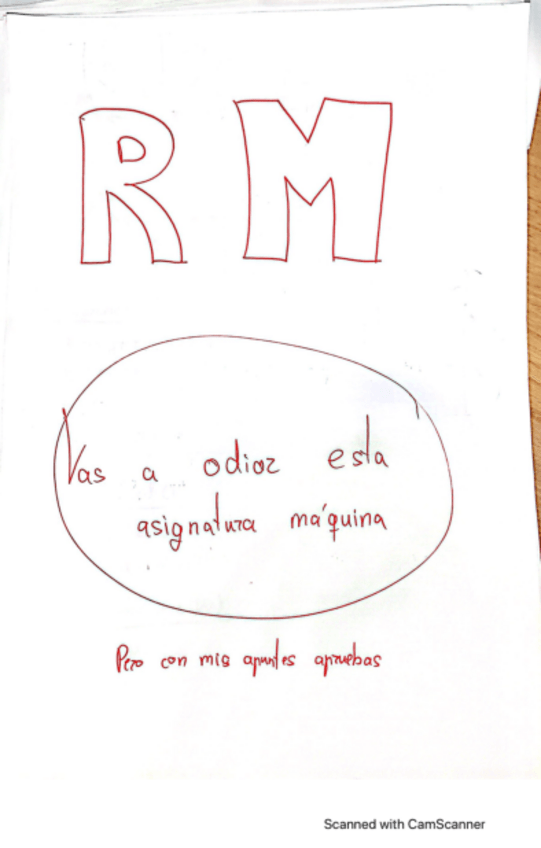 RM
Vas a odiar esta
asignatura máquina
Pero con mis apuntes apruebas
Scanned with CamScanner